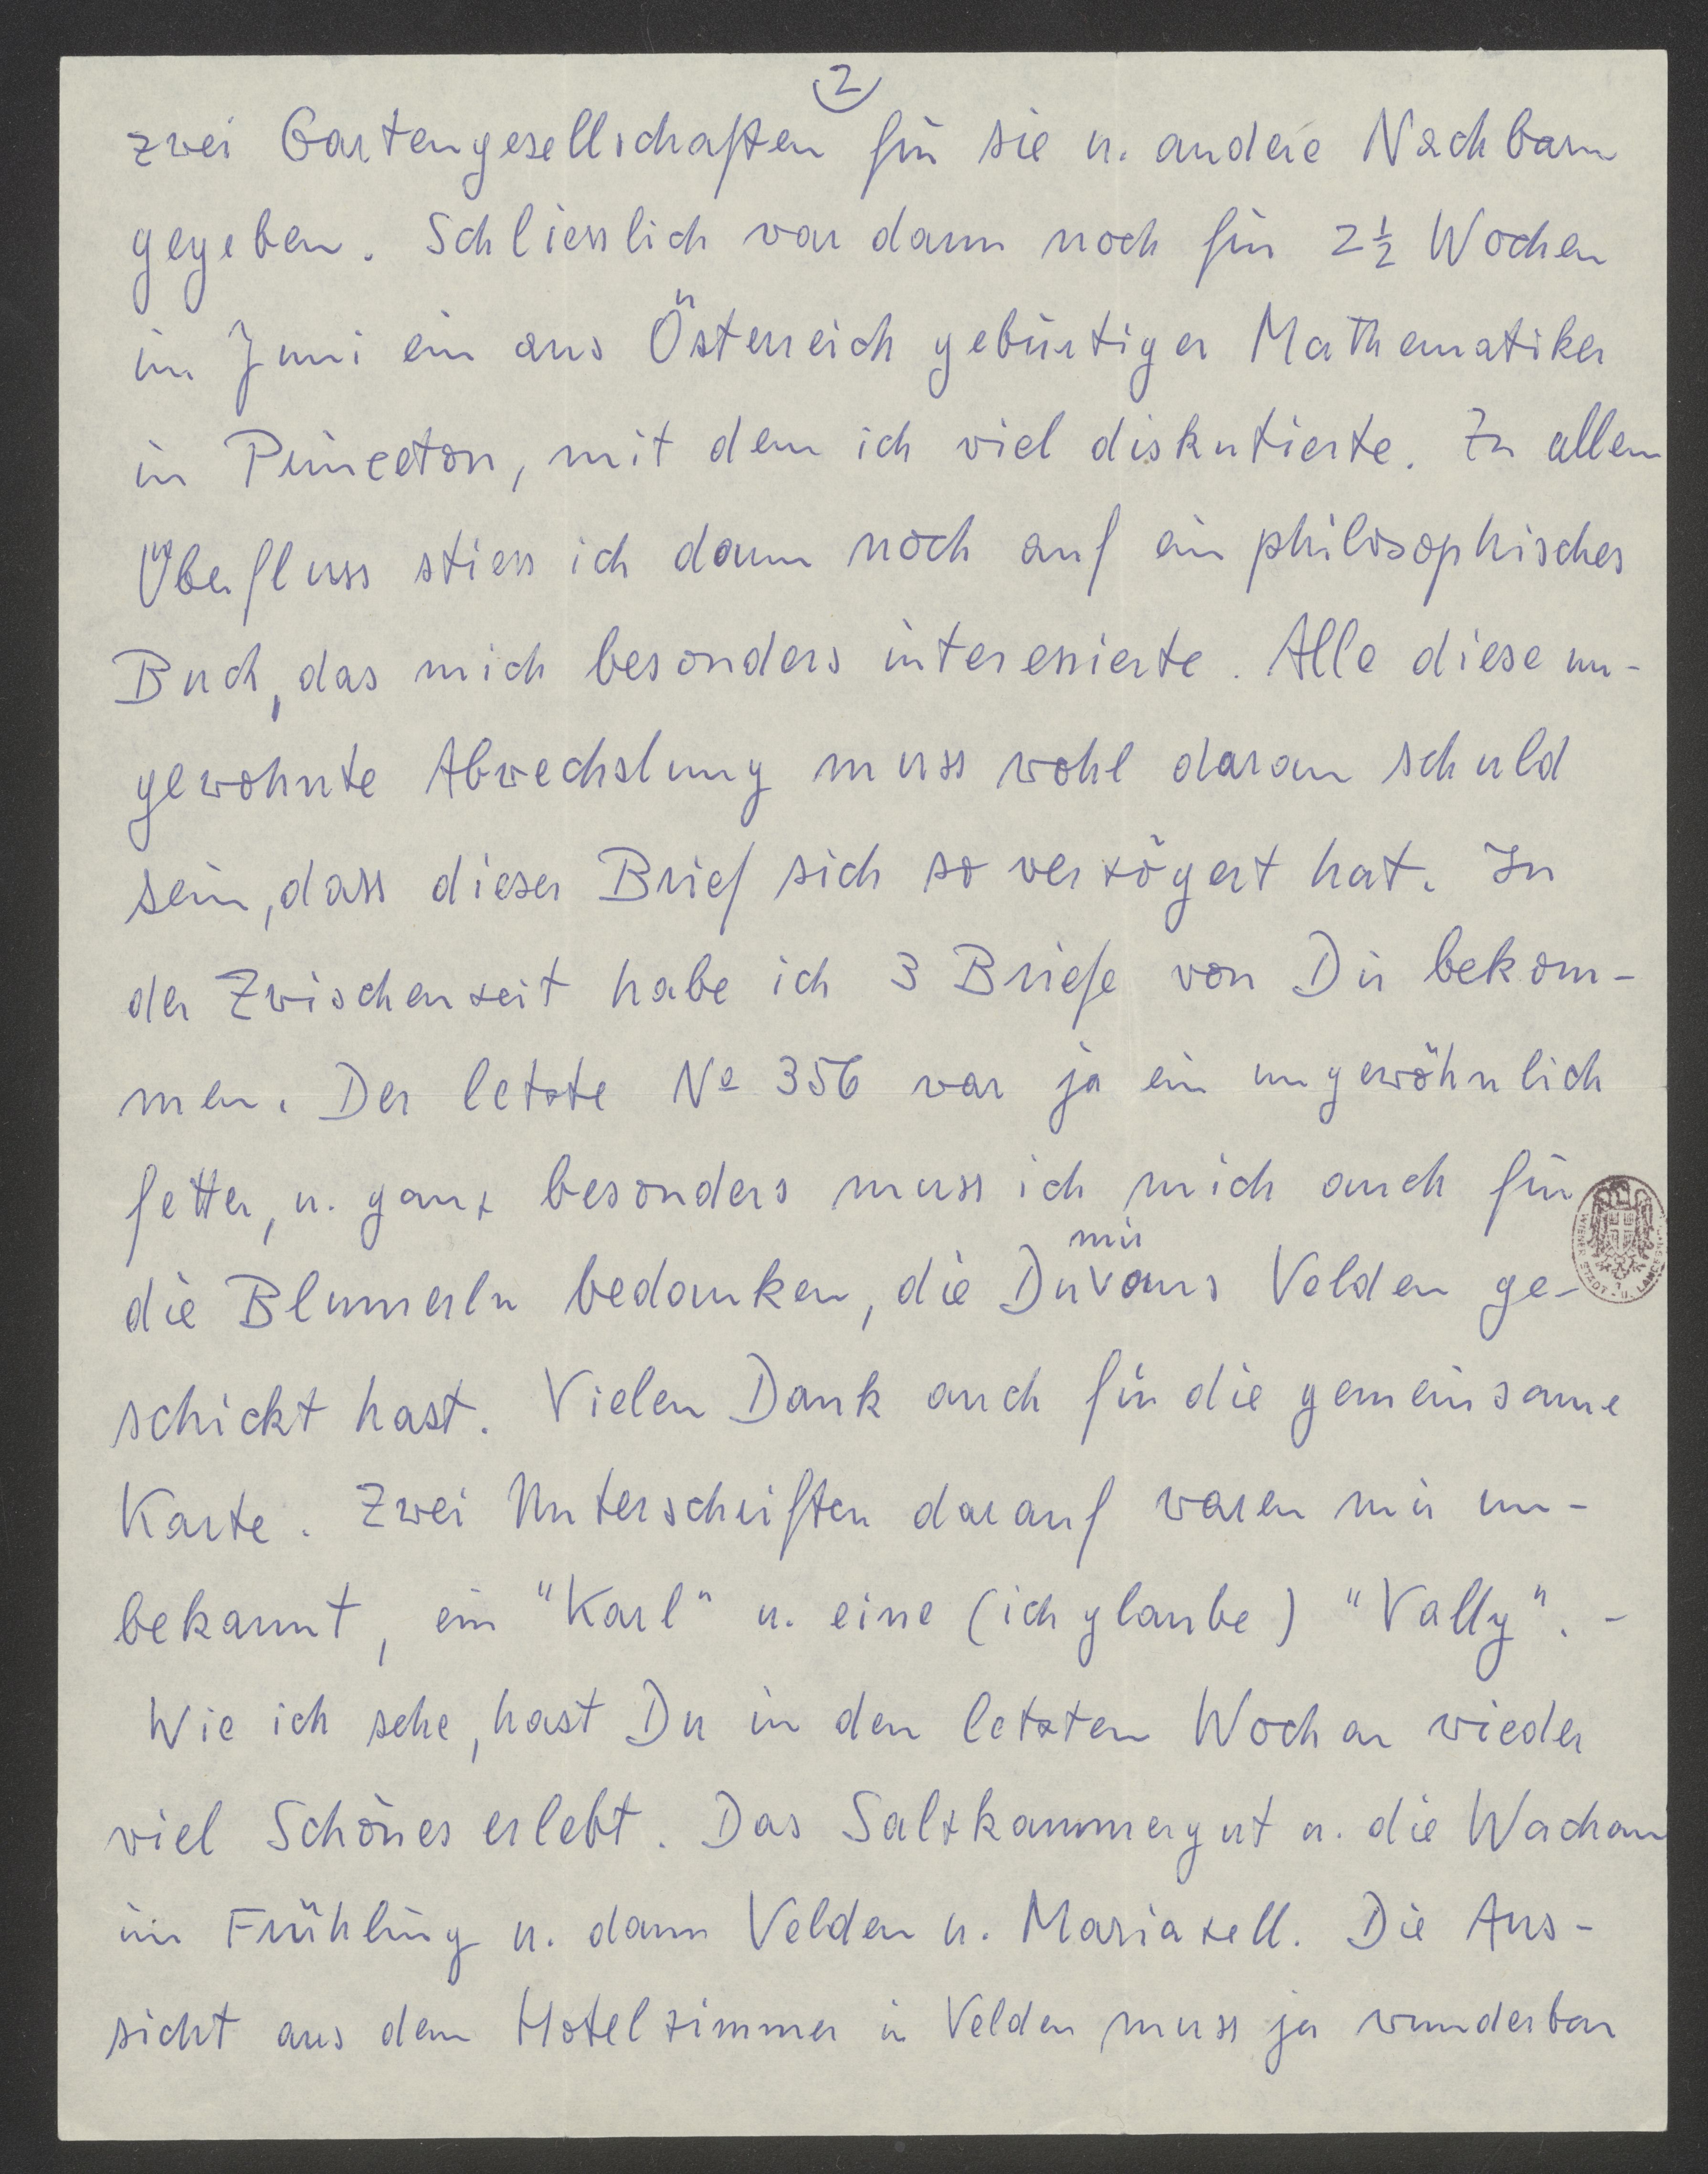 2
zwei Gartengesellschaften für sie u. andere Nachbarn
gegeben. Schliesslich war dann noch für 2½ Wochen
im Juni ein aus Österreich gebürtiger Mathematiker
in Princeton, mit dem ich viel diskutierte. Zu allem
Überfluss stiess ich dann noch auf ein philosophisches
Buch, das mich besonders interessierte. Alle diese un-
gewohnte Abwechslung muss wohl daran schuld
sein, dass dieser Brief sich so verzögert hat. In
der Zwischenzeit habe ich 3 Briefe von Dir bekom-
men. Der letzte No 356 war ja ein ungewöhnlich
fetter, u. ganz besonders muss ich mich auch für
mir
die Blumerln bedanken, die Du aus Velden ge-
schickt hast. Vielen Dank auch für die gemeinsame
Karte. Zwei Unterschriften darauf waren mir un-
bekannt, ein "Karl" u. eine (ich glaube) "Vally". -
Wie ich sehe, hast Du in den letzten Wochen wieder
viel Schönes erlebt. Das Salzkammergut u. die Wachau
im Frühling u. dann Velden u. Mariazell. Die Aus-
sicht aus dem Hotelzimmer in Velden muss ja wunderbar